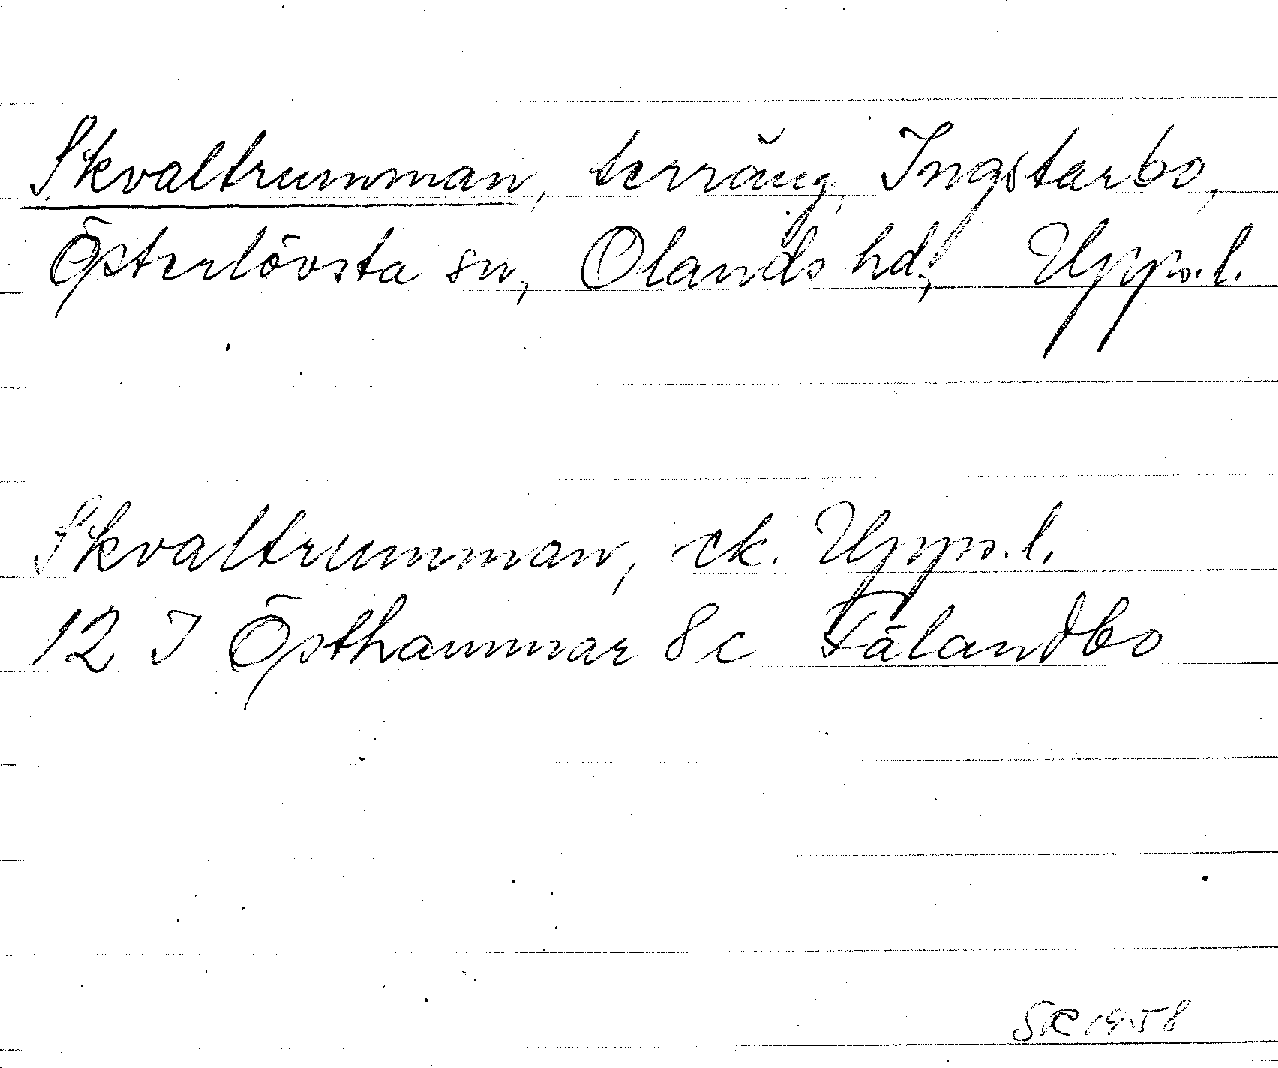 Skvaltrumman, terräng, Ingstarbo,
Österlövsta sn, Olands hd, Upps.l.
Skvaltrumman, ek. Upps.l.
12 I Östhammar 8c Fälandbo
1958